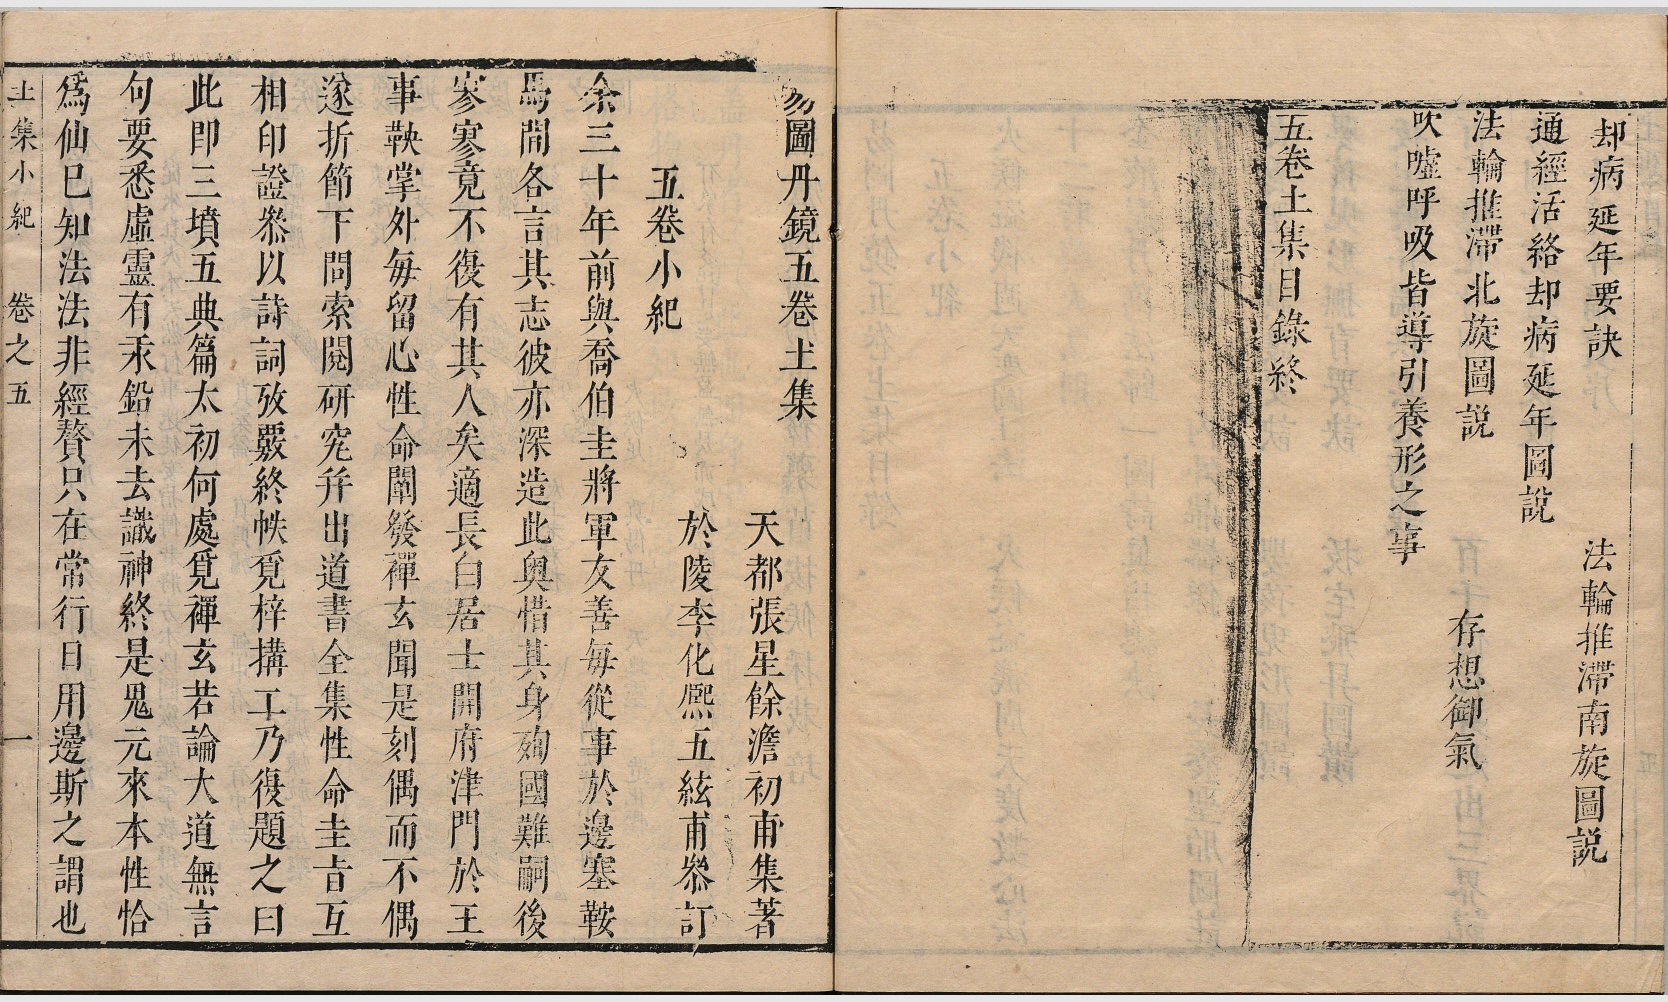 却病延年要訣
法輪推滯南旋圖説
通經活絡却病延年圖説
法輪推滯北旋圖説
存想御氣
吹噓呼吸皆導引養形之事
五卷土集目錄終
易圖丹鏡五卷土集
天都張星餘澹初甫集著
於陵李化熙五絃甫叅訂
五卷小紀
余三十年前與喬伯圭將軍友善每從事於邊塞鞍
馬間各言其志彼亦深造此奥惜其身殉國難嗣後
寥寥竟不復有其人矣適長白居士開府津門於王
事鞅掌外每留心性命闡發禪玄聞是刻偶而不偶
遂折節下問索閱研究幷出道書全集性命圭旨互
相印證叅以詩詞攷覈終帙覓梓搆工乃復題之曰
此即三墳五典篇太初何處覓禪玄若論大道無言
句要悉虛靈有汞鉛未去識神終是鬼元來本性恰
爲仙已知法法非經贅只在常行日用邊斯之謂也
土集小紀
卷之五
一